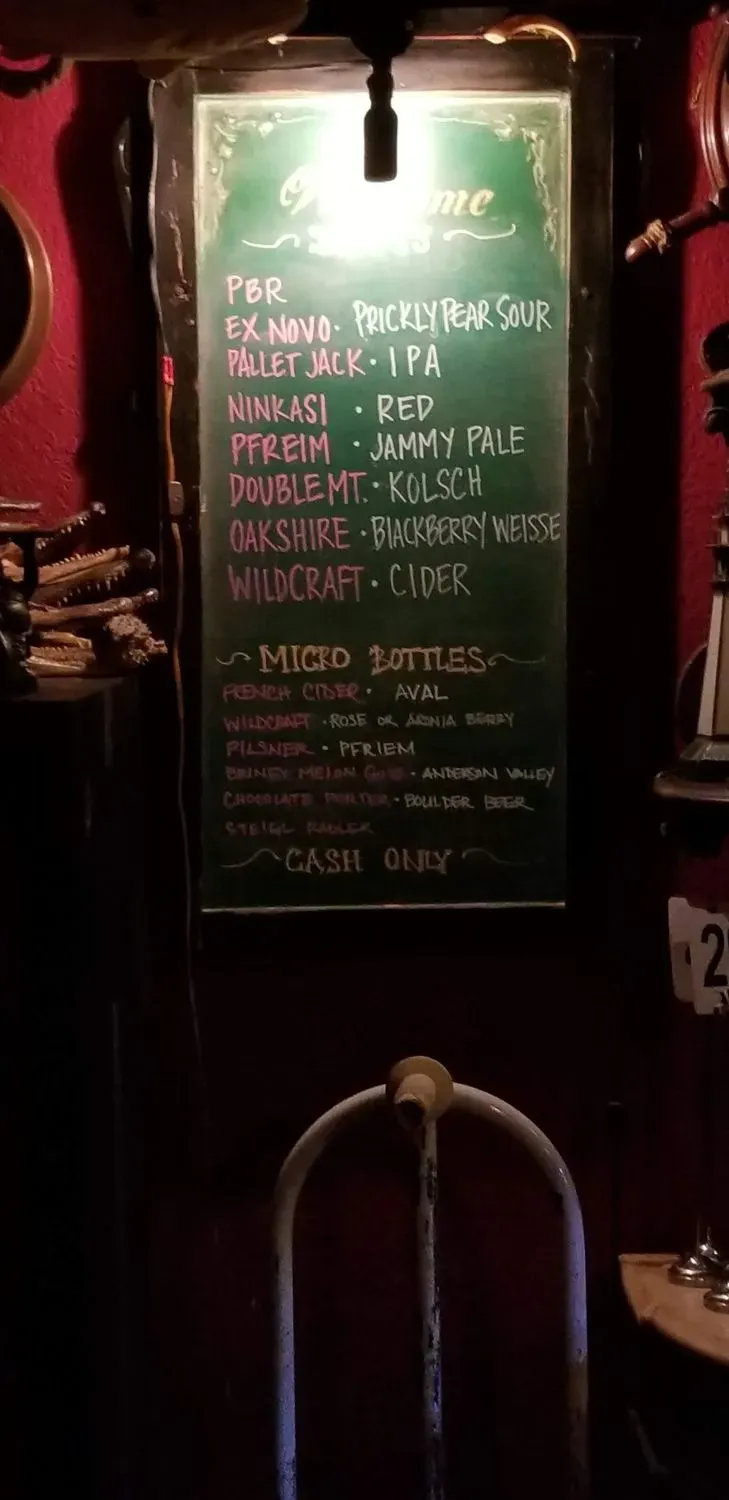 PBR
EX NOVO · PRICKLY PEAR SOUR
PALLET JACK · IPA
NINKASI · RED
PFREIM · JAMMY PALE
DOUBLE MT. · KOLSCH
OAKSHIRE · BLACKBERRY WEISSE
WILDCRAFT · CIDER
~ MICRO BOTTLES ~
FRENCH CIDER · AVAL
WILDCRAFT · ROSE OR ARONIA BERRY
PILSNER · PFRIEM
BRINEY MELON GOSE · ANDERSON VALLEY
CHOCOLATE PORTER · BOULDER BEER
STEIGL RADLER
CASH ONLY
2